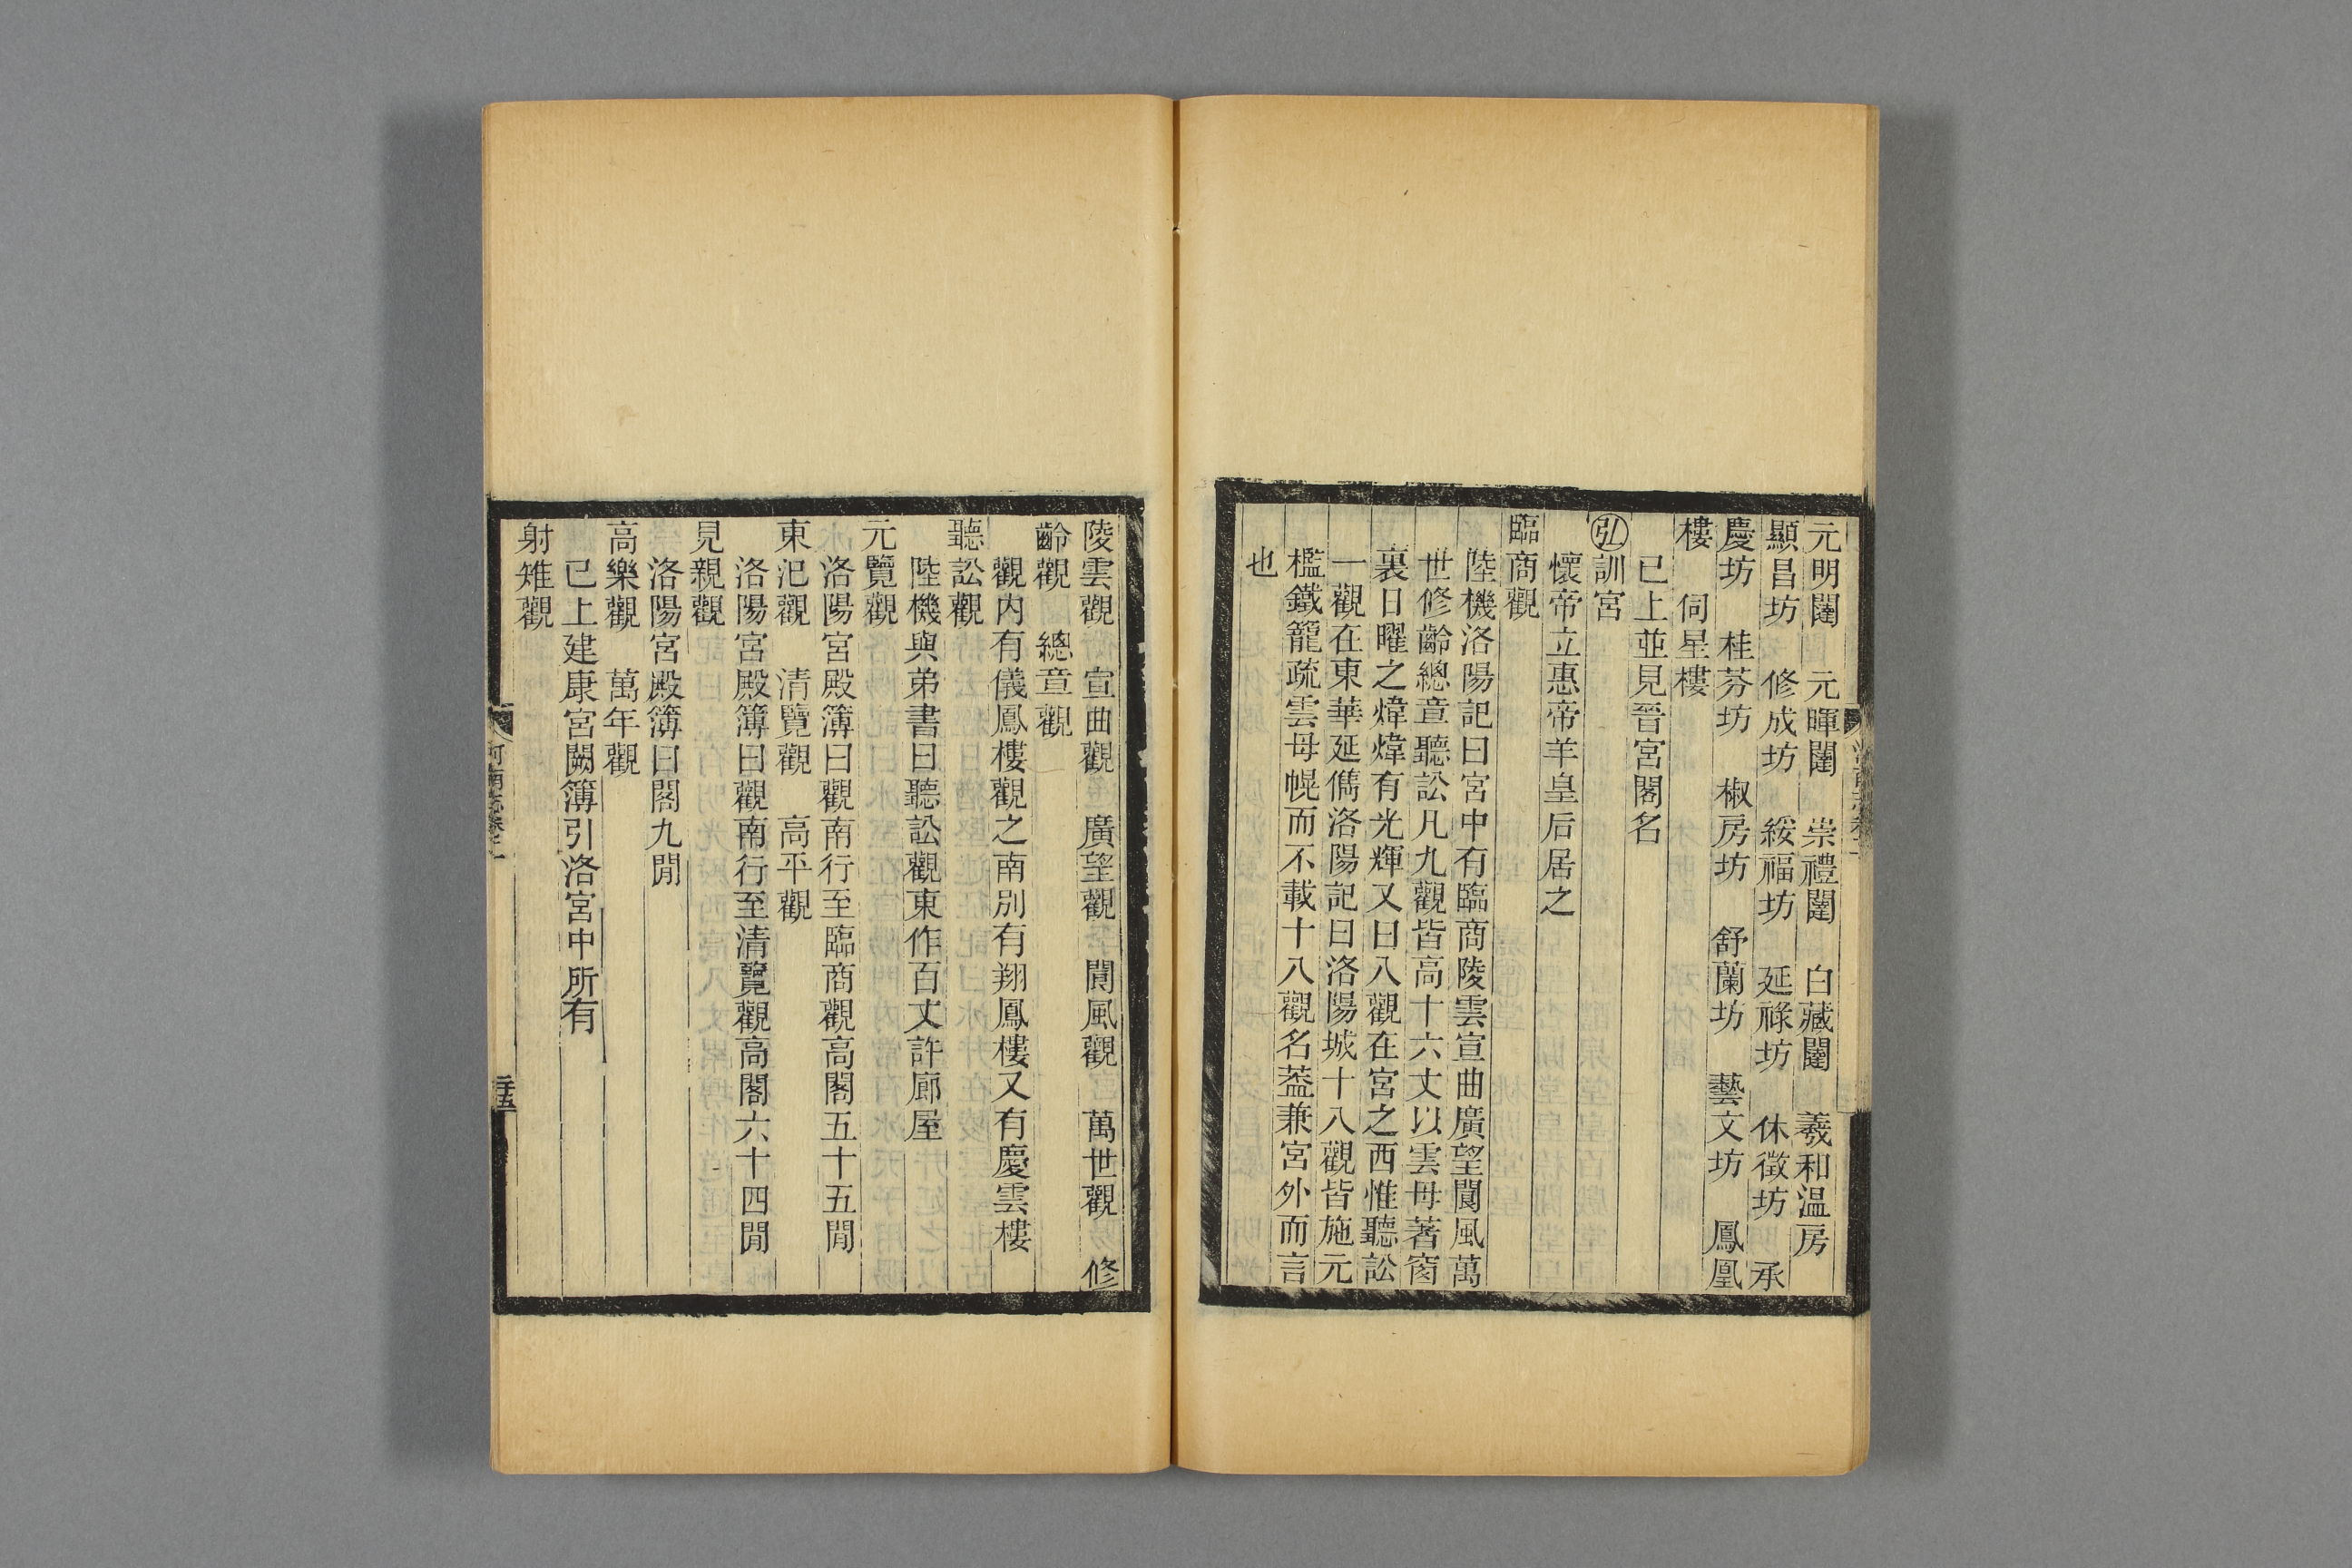 元明闥　元暉闥　崇禮闥　白藏闥　羲和温房
顯昌坊　修成坊　綏福坊　延祿坊　休徵坊　承
慶坊　桂芬坊　椒房坊　舒蘭坊　藝文坊　鳳凰
樓　伺星樓
已上並見晉宮閣名
弘訓宮
懷帝立惠帝羊皇后居之
臨商觀
陸機洛陽記曰宮中有臨商陵雲宣曲廣望閬風萬
世修齡總章聽訟凡九觀皆高十六丈以雲母著窗
裏日曜之煒煒有光輝又曰八觀在宮之西惟聽訟
一觀在東華延儁洛陽記曰洛陽城十八觀皆施元
檻鐵籠疏雲母幌而不載十八觀名葢兼宮外而言
也
陵雲觀　宣曲觀　廣望觀　閬風觀　萬世觀　修
齡觀　總章觀
觀内有儀鳳樓觀之南別有翔鳳樓又有慶雲樓
聽訟觀
陸機與弟書曰聽訟觀東作百丈許廊屋
元覽觀
洛陽宮殿簿曰觀南行至臨商觀高閣五十五閒
東汜觀　清覽觀　高平觀
洛陽宮殿簿曰觀南行至清覽觀高閣六十四閒
見親觀
洛陽宮殿簿曰閣九閒
高樂觀　萬年觀
已上建康宮闕簿引洛宮中所有
射雉觀
河南志卷二
二十五